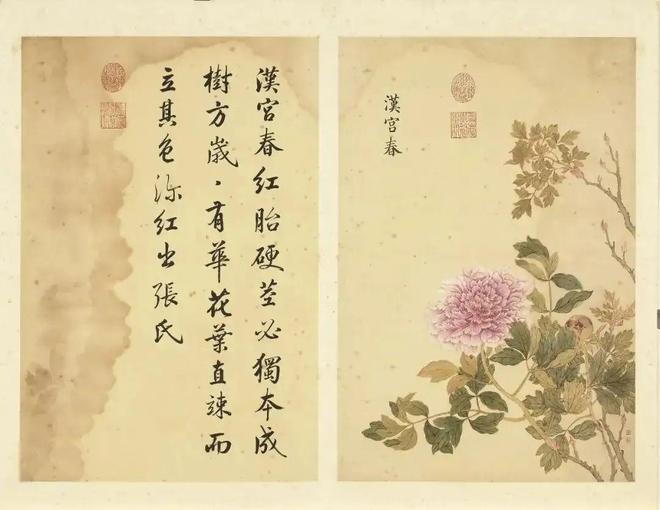 漢宮春
漢宮春紅胎硬莖必獨本成
樹方歲、有華花葉直竦而
立其色深紅出張氏